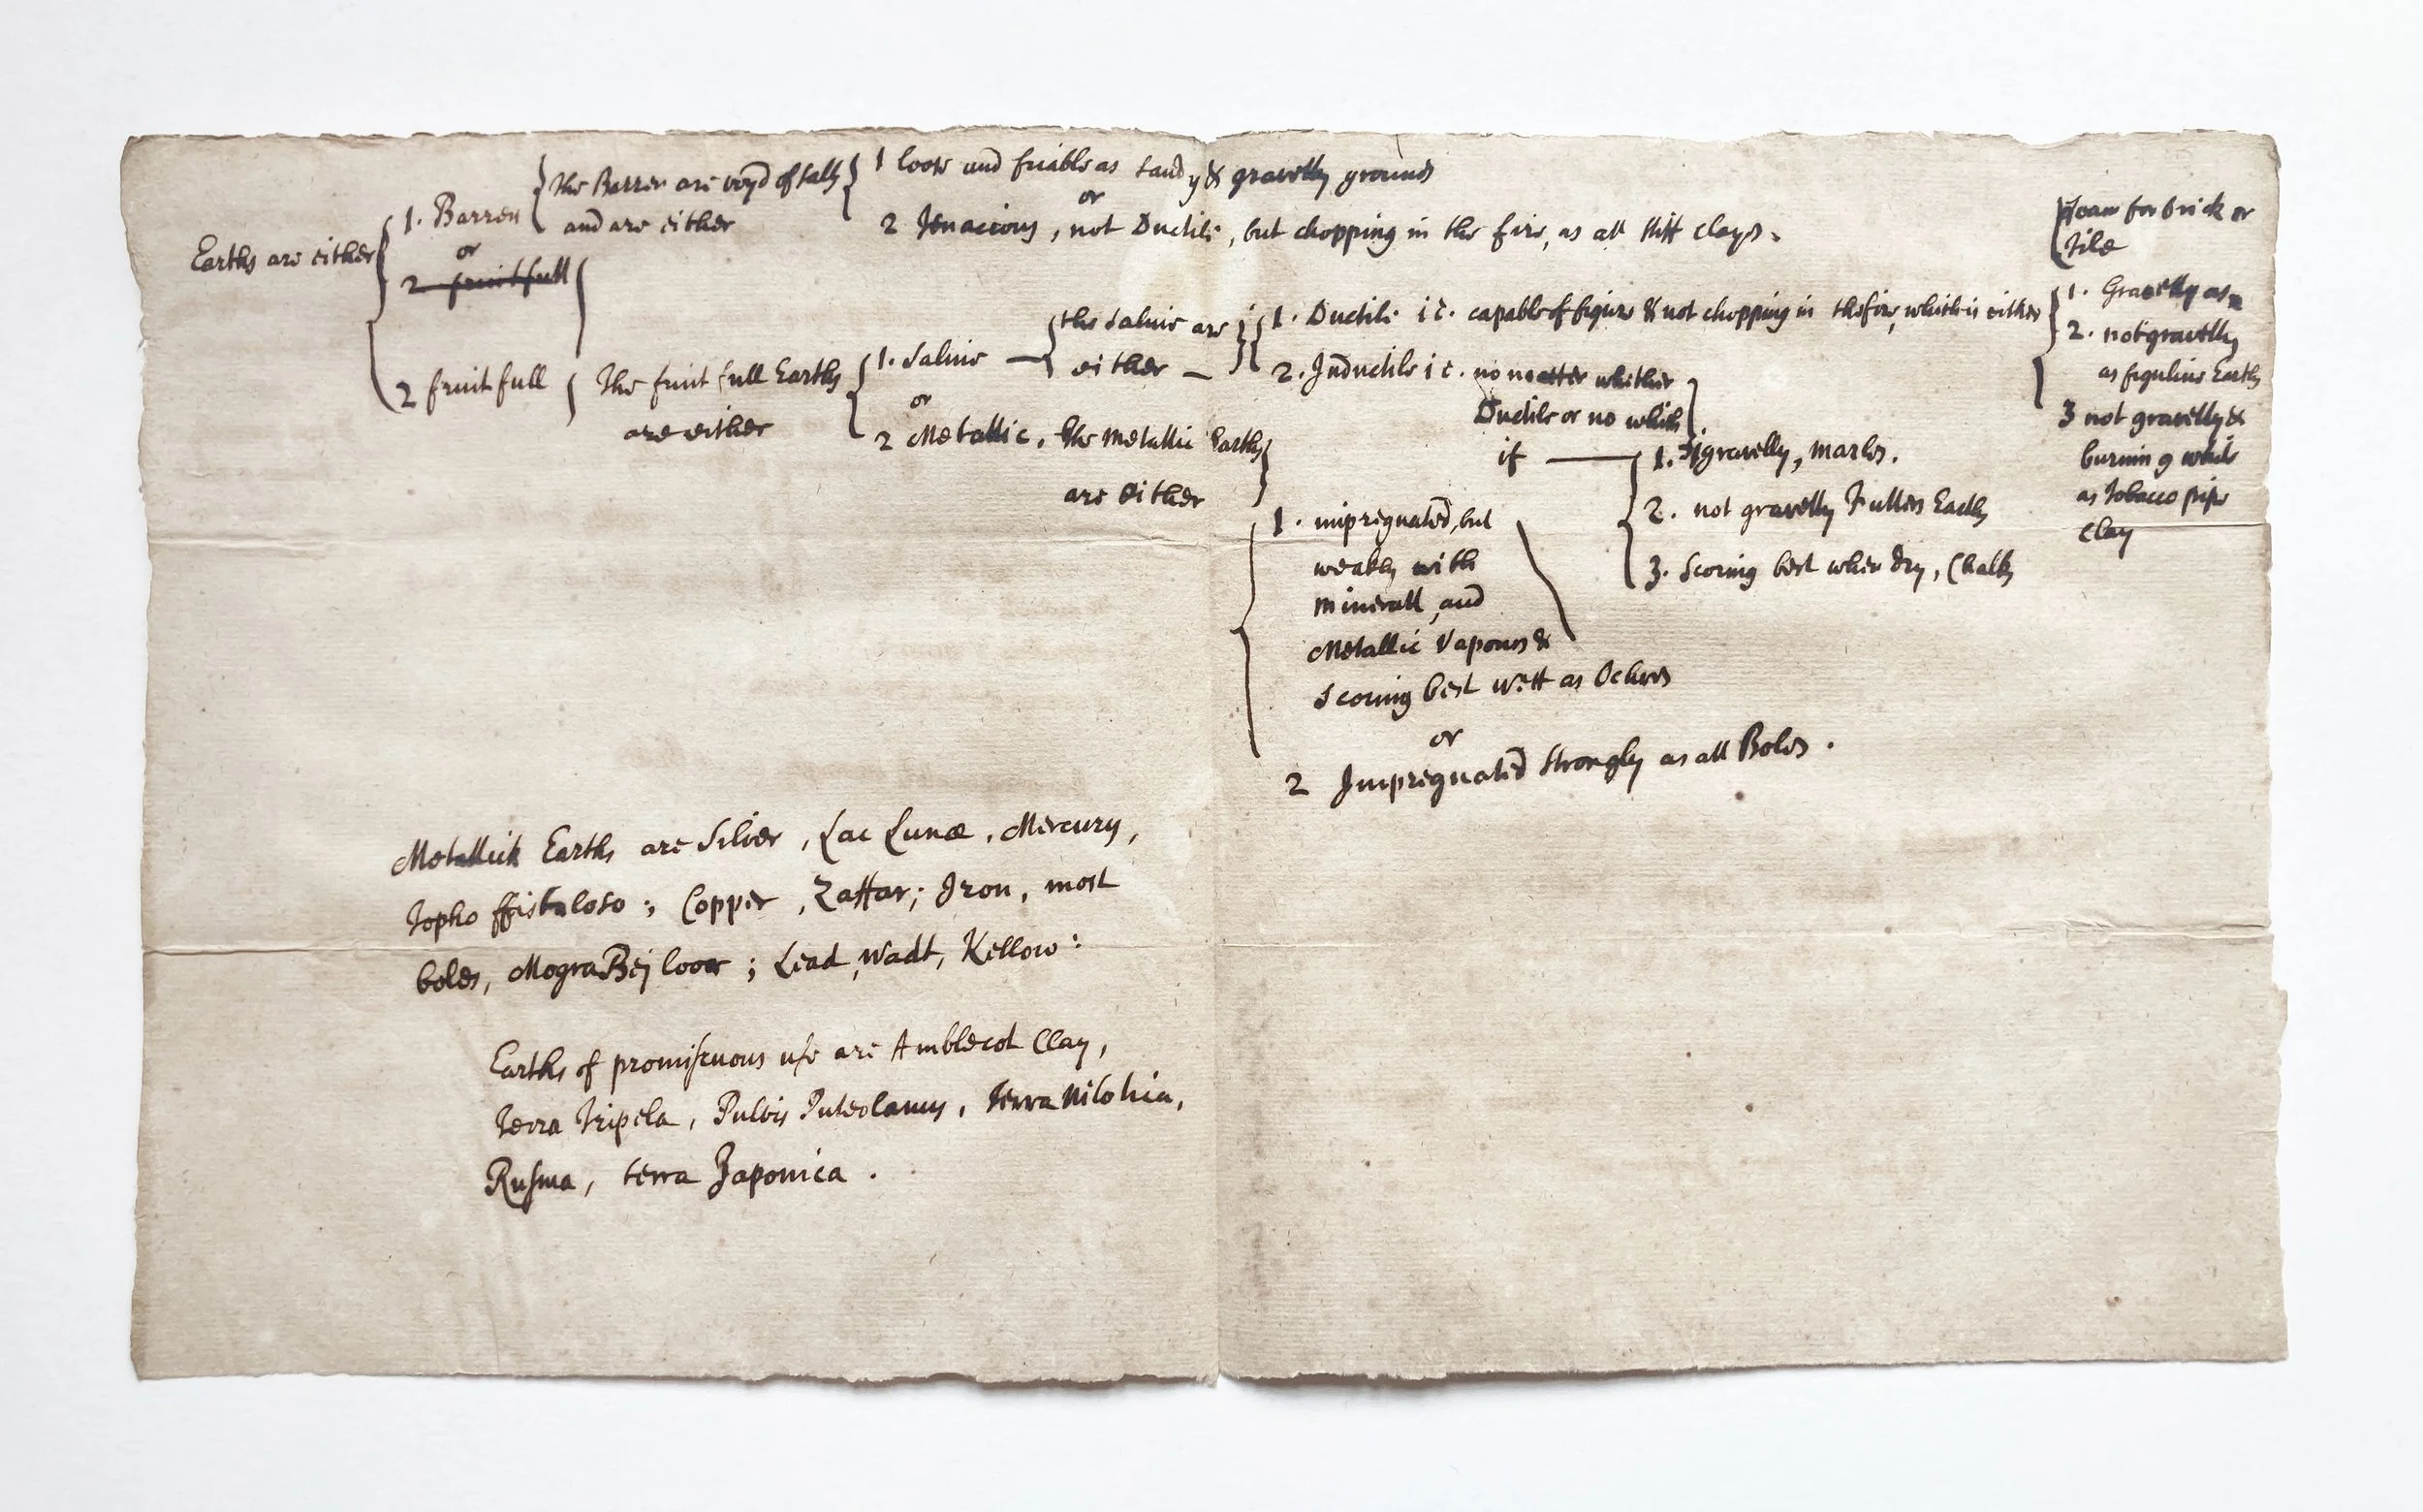 Earths are either
1. Barren
or
2 fruitfull
2 fruitfull
the Barren are voyd of salts
and are either
1 loose and friable as sandy & gravelly grounds
or
2 Tenacious, not Ductile, but chopping in the fire, as all stiff clays.
The fruitfull Earths
are either
1. Saline
or
2 Metallic. the Metallic Earths
are either
the Saline are
either
1. Ductile i e. capable of figure & not chopping in the fire, which is either
2. Inductile i e. no matter whether
Ductile or no which
if
1. gravelly, marles.
2. not gravelly Fullers Earth
3. Scoring best when dry, Chalk
Loam for brick or
Tile
1. Gravelly as
2. not gravelly
as figuline Earth
3 not gravelly &
burning white
as Tobacco pipe
Clay
1. impregnated, but
weakly with
minerall, and
Metallic Vapours &
Scoring best wett as Ochres
or
2 Impregnated Strongly as all Boles.
Metallick Earths are Silver, Lac Lunæ, Mercury,
Topho ffistuloso; Copper, Zaffar; Iron, most
boles, Mogra Bej looer; Lead, Wadt, Kellow:
Earths of promiscuous use are Amblecot Clay,
Terra Tripela, Pulvis Puteolanus, Terra Nilotica,
Rusma, terra Japonica.